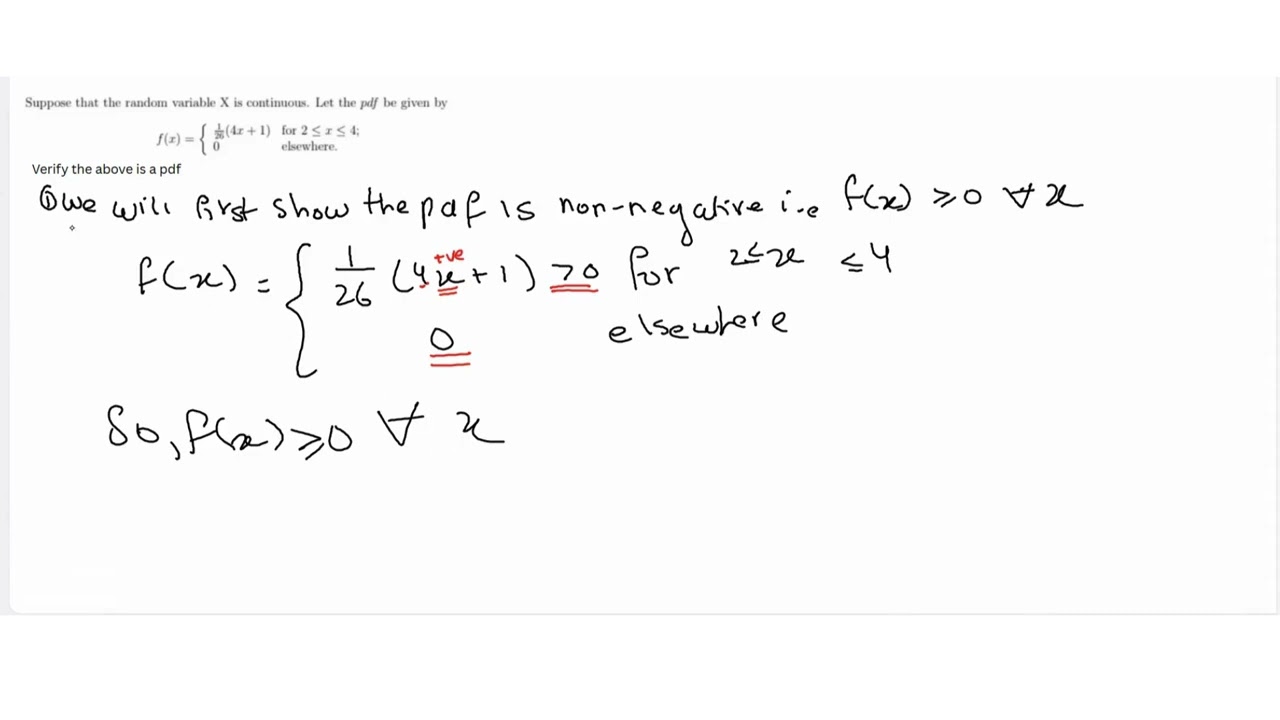 Suppose that the random variable X is continuous. Let the pdf be given by
f(x) = { 1/26 (4x + 1) for 2 ≤ x ≤ 4;
0 elsewhere.
Verify the above is a pdf
① we will first show the pdf is non-negative i.e f(x) ≥ 0 ∀ x
+ve
f(x) = { 1/26 (4x + 1) >0 for 2 ≤ x ≤ 4
0 elsewhere
So, f(x) ≥ 0 ∀ x